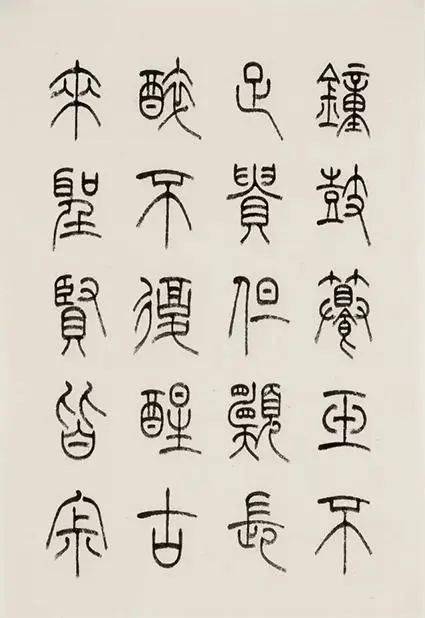 鐘鼓饌玉不
足貴但願長
醉不復醒古
來聖賢皆寂